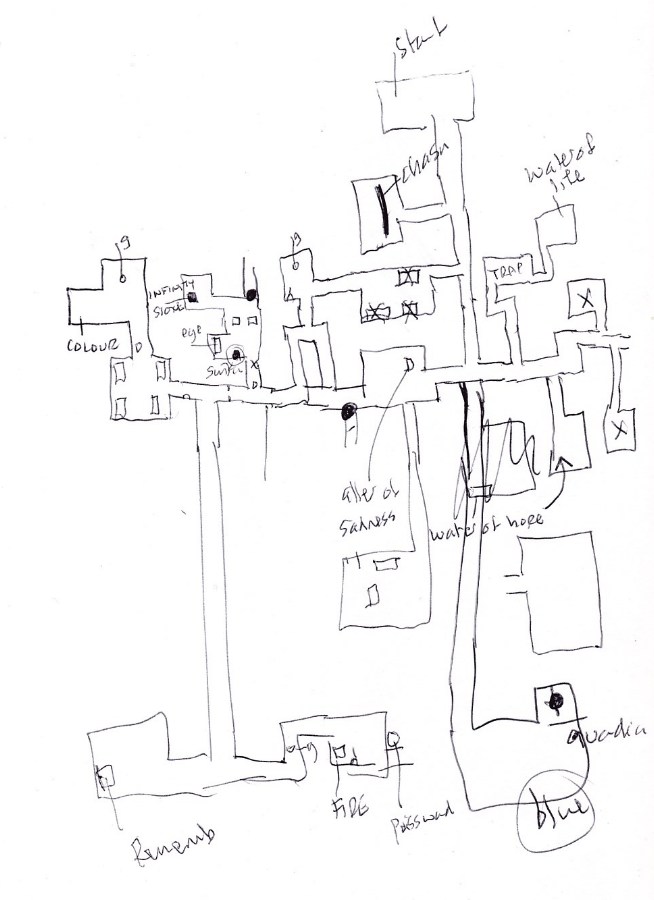 Start
chasm
water of
life
TRAP
g
g
INFINITY
COLOUR
eye
D
D
D
X
X
X
X
X
X
alter of
Sadness
water of hope
guardian
blue
g
d
FIRE
Password
Rememb